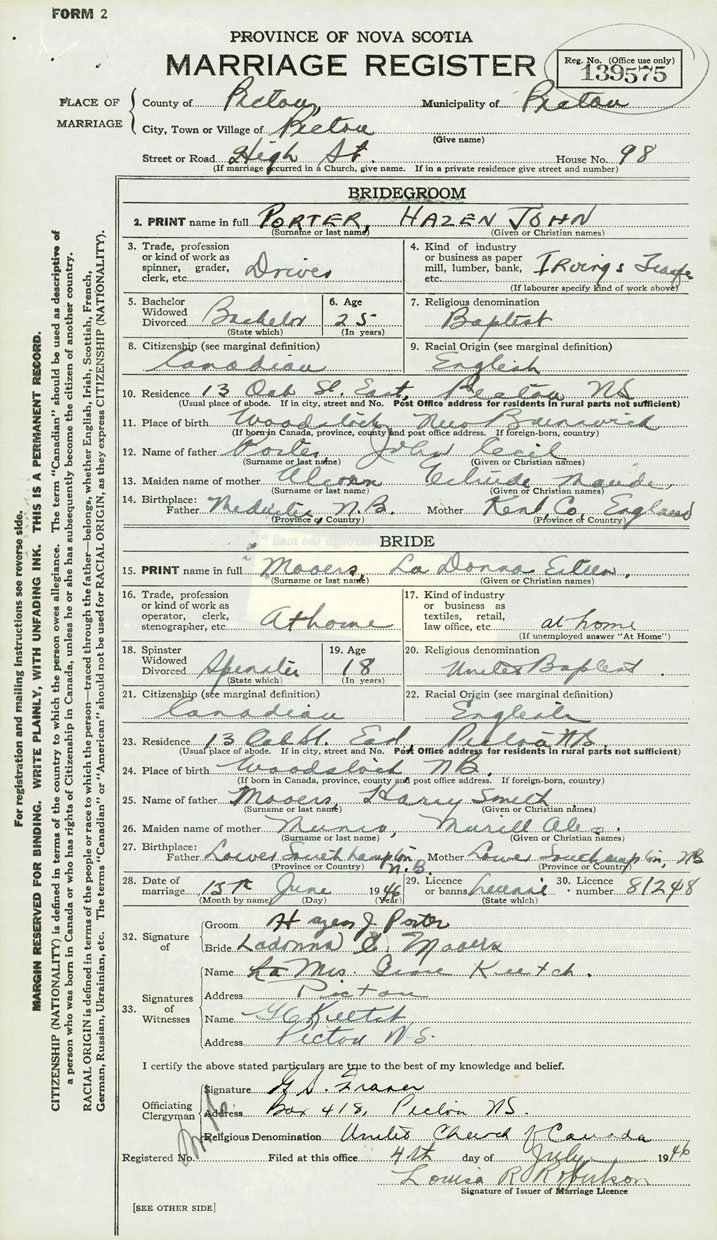 FORM 2
PROVINCE OF NOVA SCOTIA
MARRIAGE REGISTER
Reg. No. (Office use only)
139575
PLACE OF MARRIAGE
County of Pictou, Municipality of Pictou
City, Town or Village of Pictou
(Give name)
Street or Road High St. House No. 98
(If marriage occurred in a Church, give name. If in a private residence give street and number)
BRIDEGROOM
2. PRINT name in full PORTER, HAZEN JOHN
(Surname or last name) (Given or Christian names)
3. Trade, profession or kind of work as spinner, grader, clerk, etc. Driver
4. Kind of industry or business as paper mill, lumber, bank, etc. Irving's
(If labourer specify kind of work above)
5. Bachelor Widowed Divorced Bachelor
(State which)
6. Age 25
(In years)
7. Religious denomination Baptist
8. Citizenship (see marginal definition) Canadian
9. Racial Origin (see marginal definition) English
10. Residence 13 Oak St. East, Pictou NS
(Usual place of abode. If in city, street and No. Post Office address for residents in rural parts not sufficient)
11. Place of birth Woodstock, New Brunswick
(If born in Canada, province, county and post office address. If foreign-born, country)
12. Name of father Porter, John Cecil
(Surname or last name) (Given or Christian names)
13. Maiden name of mother Gertrude Maude,
(Surname or last name) (Given or Christian names)
14. Birthplace: Father N.B. Mother Kent Co, England
(Province or Country) (Province or Country)
BRIDE
15. PRINT name in full Mooers, La Donna Eileen,
(Surname or last name) (Given or Christian names)
16. Trade, profession or kind of work as operator, clerk, stenographer, etc. At home
17. Kind of industry or business as textiles, retail, law office, etc. at home
(If unemployed answer "At Home")
18. Spinster Widowed Divorced Spinster
(State which)
19. Age 18
(In years)
20. Religious denomination United Baptist.
21. Citizenship (see marginal definition) Canadian
22. Racial Origin (see marginal definition) English
23. Residence 13 Oak St. East, Pictou NS.
(Usual place of abode. If in city, street and No. Post Office address for residents in rural parts not sufficient)
24. Place of birth Woodstock N.B.
(If born in Canada, province, county and post office address. If foreign-born, country)
25. Name of father Mooers, Harry Smith
(Surname or last name) (Given or Christian names)
26. Maiden name of mother Munro,
(Surname or last name) (Given or Christian names)
27. Birthplace: Father Lower Southampton, N.B. Mother Lower Southampton, NB
(Province or Country) (Province or Country)
28. Date of marriage 15th June 1946
(Month by name) (Day) (Year)
29. Licence or banns License
(State which)
30. Licence number 81248
32. Signature of
Groom Hazen J. Porter
Bride Ladonna E. Mooers
33. Signatures of Witnesses
Name Mrs. Keetch.
Address Pictou
Name Keetch
Address Pictou N.S.
I certify the above stated particulars are true to the best of my knowledge and belief.
Officiating Clergyman
Signature Fraser
Address Box 418, Pictou NS.
Religious Denomination United Church of Canada
Registered No. Filed at this office 4th day of July 1946
Louisa R Robertson
Signature of Issuer of Marriage Licence
[SEE OTHER SIDE]
For registration and mailing instructions see reverse side.
MARGIN RESERVED FOR BINDING. WRITE PLAINLY, WITH UNFADING INK. THIS IS A PERMANENT RECORD.
CITIZENSHIP (NATIONALITY) is defined in terms of the country to which the person owes allegiance. The term "Canadian" should be used as descriptive of
a person who was born in Canada or who has rights of Citizenship in Canada, unless he or she has subsequently become the citizen of another country.
RACIAL ORIGIN is defined in terms of the people or race to which the person—traced through the father—belongs, whether English, Irish, Scottish, French,
German, Russian, Ukrainian, etc. The terms "Canadian" or "American" should not be used for RACIAL ORIGIN, as they express CITIZENSHIP (NATIONALITY).